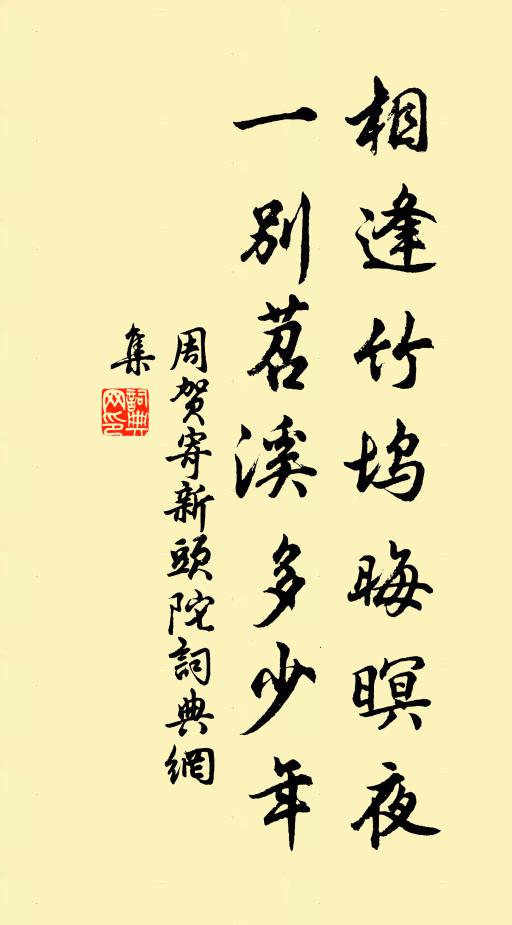 相逢竹坞晦暝夜
一别苕溪多少年
周贺寄新頭陀詞典網
集
詞典
网印